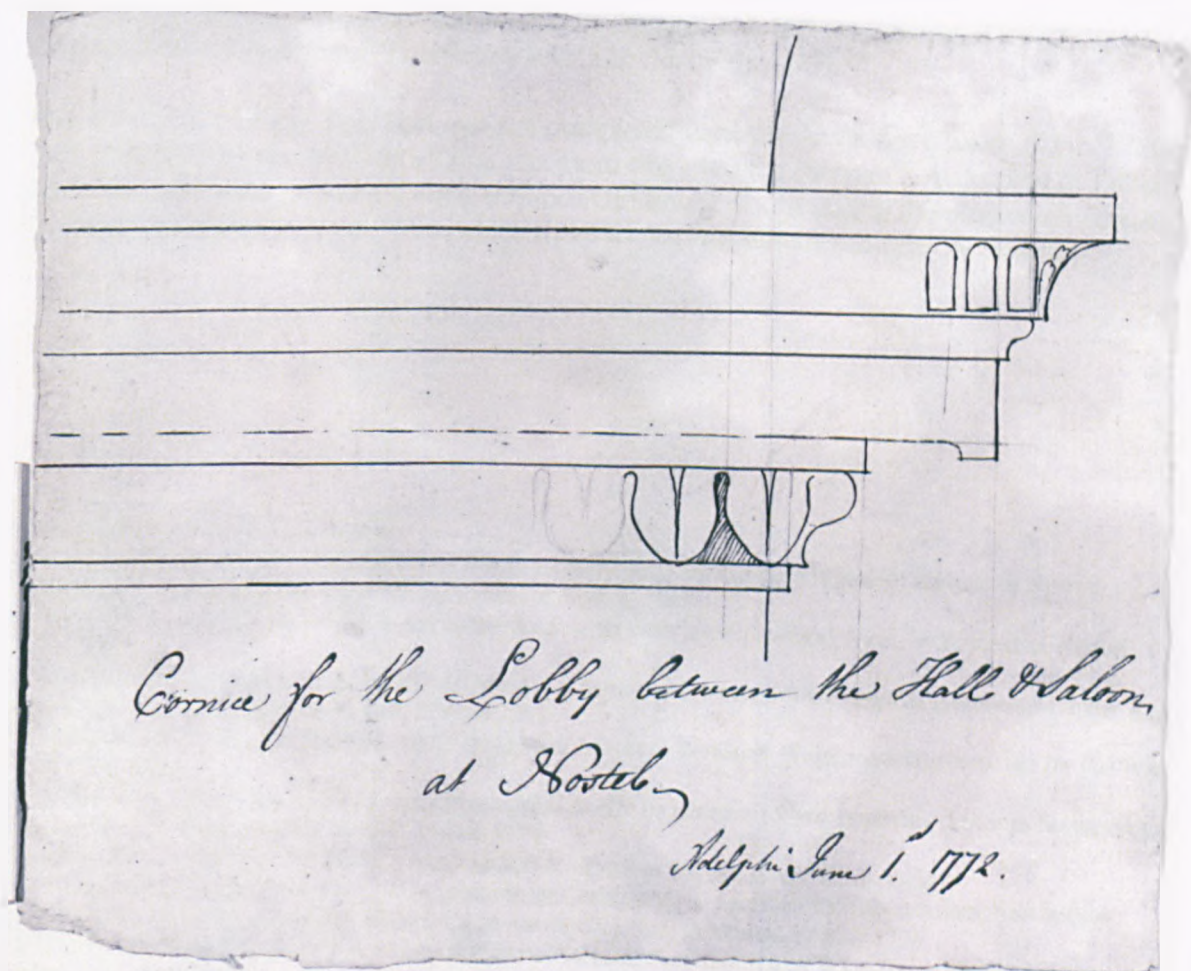 Cornice for the Lobby between the Hall & Saloon
at Nostel.
Adelphi June 1.st 1772.